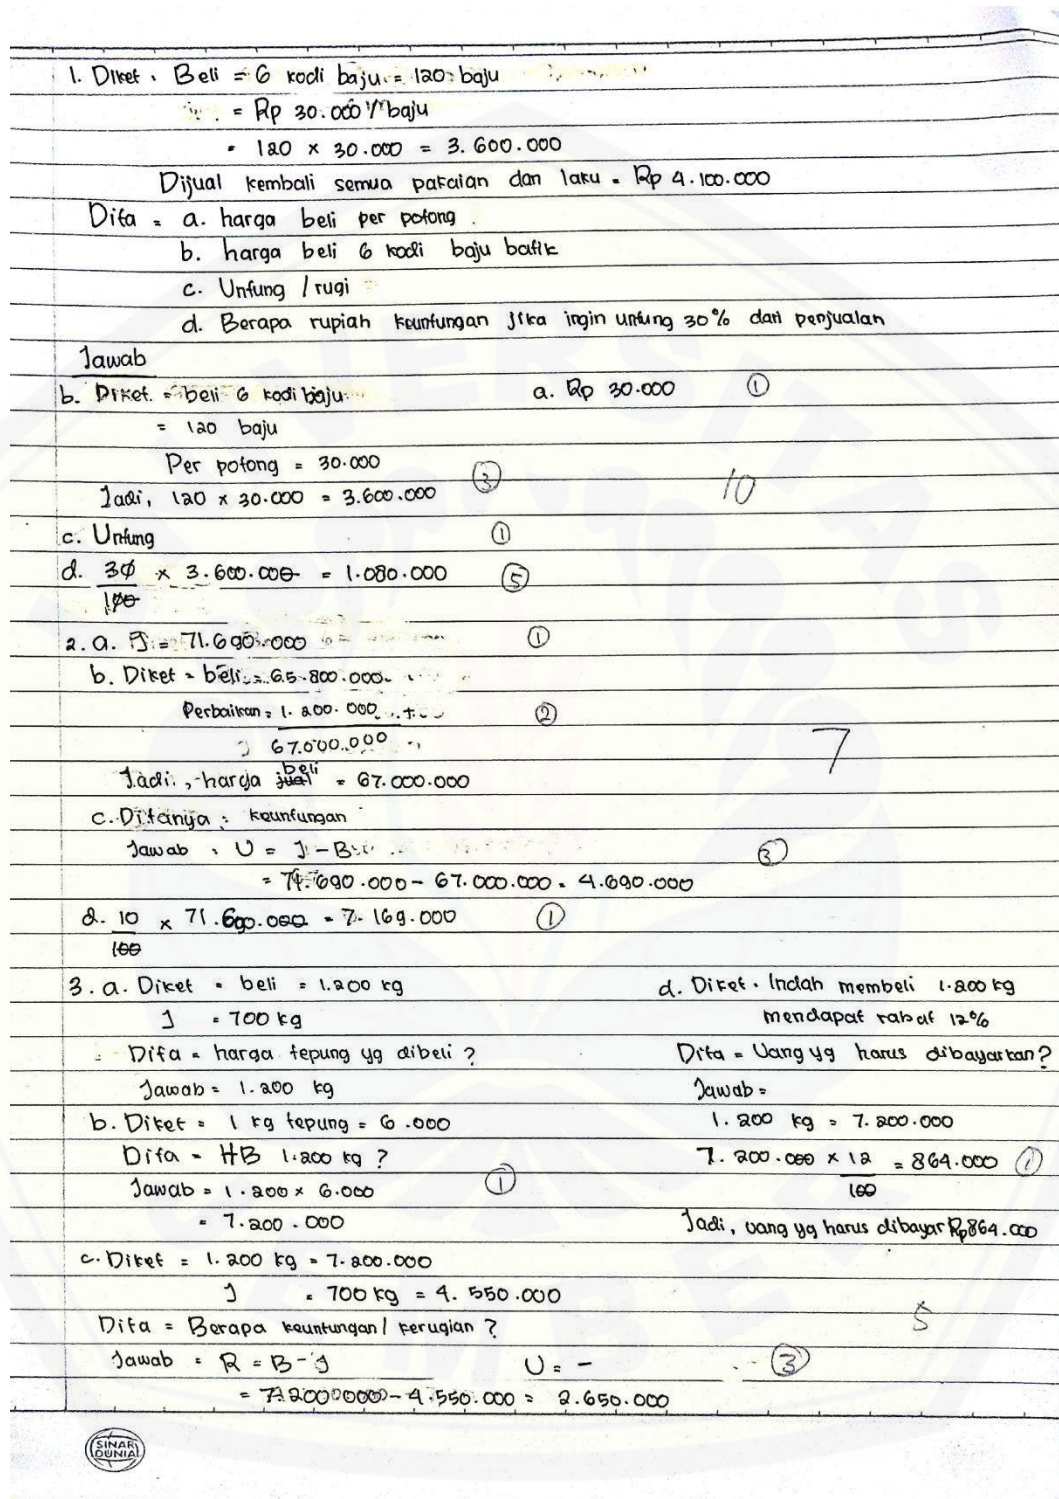 1. Diket . Beli = 6 kodi baju = 120 baju
= Rp 30.000 / baju
= 120 x 30.000 = 3.600.000
Dijual kembali semua pakaian dan laku = Rp 4.100.000
Dita = a. harga beli per potong .
b. harga beli 6 kodi baju batik
c. Untung / rugi
d. Berapa rupiah keuntungan jika ingin untung 30% dari penjualan
Jawab
b. Diket. = beli 6 kodi baju
= 120 baju
Per potong = 30.000
Jadi, 120 x 30.000 = 3.600.000 (3)
a. Rp 30.000 (1)
10
c. Untung (1)
d. 30/100 x 3.600.000 = 1.080.000 (5)
2. a. J = 71.690.000 (1)
b. Diket = beli = 65.800.000
Perbaikan = 1.200.000 (2)
67.000.000
Jadi, harga jual beli = 67.000.000
7
c. Ditanya : keuntungan
Jawab : U = J - B (3)
= 71.690.000 - 67.000.000 = 4.690.000
d. 10/100 x 71.690.000 = 7.169.000 (1)
3. a. Diket = beli = 1.200 kg
J = 700 kg
Dita = harga tepung yg dibeli ?
Jawab = 1.200 kg
b. Diket = 1 kg tepung = 6.000
Dita = HB 1.200 kg ?
Jawab = 1.200 x 6.000 (1)
= 7.200.000
c. Diket = 1.200 kg = 7.200.000
J = 700 kg = 4.550.000
Dita = Berapa keuntungan / kerugian ?
Jawab = R = B - J U = - (3)
= 7.200.000 - 4.550.000 = 2.650.000
d. Diket . Indah membeli 1.200 kg
mendapat rabat 12%
Dita = Uang yg harus dibayarkan ?
Jawab =
1.200 kg = 7.200.000
7.200.000 x 12/100 = 864.000 (1)
Jadi, uang yg harus dibayar Rp864.000
5
SINAR
DUNIA